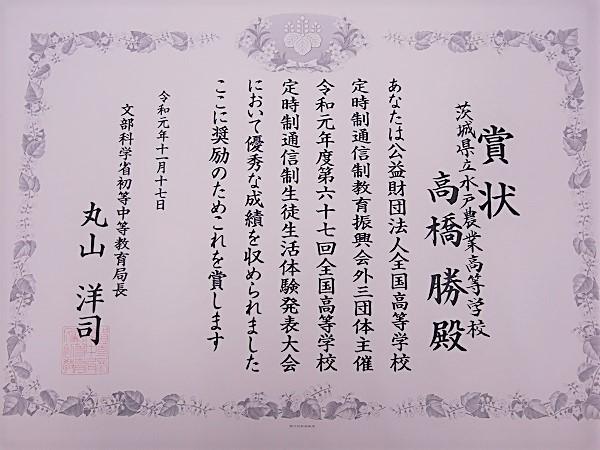 賞状
茨城県立水戸農業高等学校
高橋 勝 殿
あなたは公益財団法人全国高等学校
定時制通信制教育振興会外三団体主催
令和元年度第六十七回全国高等学校
定時制通信制生徒生活体験発表大会
において優秀な成績を収められました
ここに奨励のためこれを賞します
令和元年十一月十七日
文部科学省初等中等教育局長
丸山 洋司